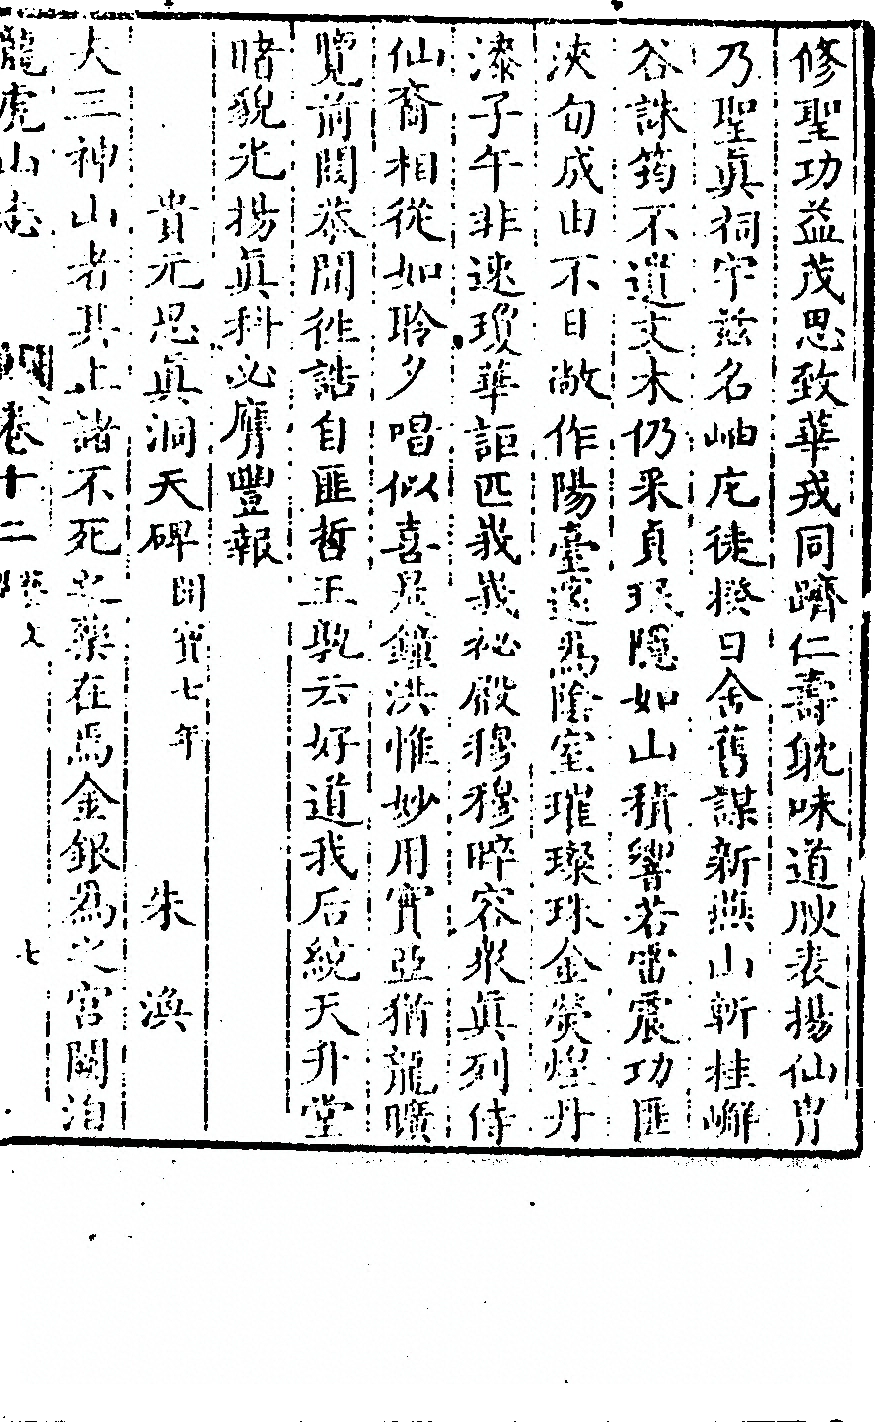 修聖功益茂思致華戎同躋仁壽耽味道腴表揚仙胄
乃聖眞祠宇茲名岫庀徒揆日舍舊謀新燕山斬桂嶰
谷誅筠不遺文木仍采貞珉隱如山積響若雷震功匪
浹旬成由不日敞作陽臺邃爲陰室璀璨珠金熒煌丹
漆子午非遠瓊華詎匹峩峩祕殿穆穆睟容衆眞列侍
仙裔相從如聆夕唱似喜晨鐘洪惟妙用實亞猶龍曠
覽前閱恭聞徃誥自匪哲王孰云好道我后統天升堂
睹貌光揚眞科必膺豐報
貴元思眞洞天碑 開寶七年 朱渙
大三神山者其上諸不死之藥在焉金銀爲之宮闕洎
龍虎山志 卷十二 藝文 七